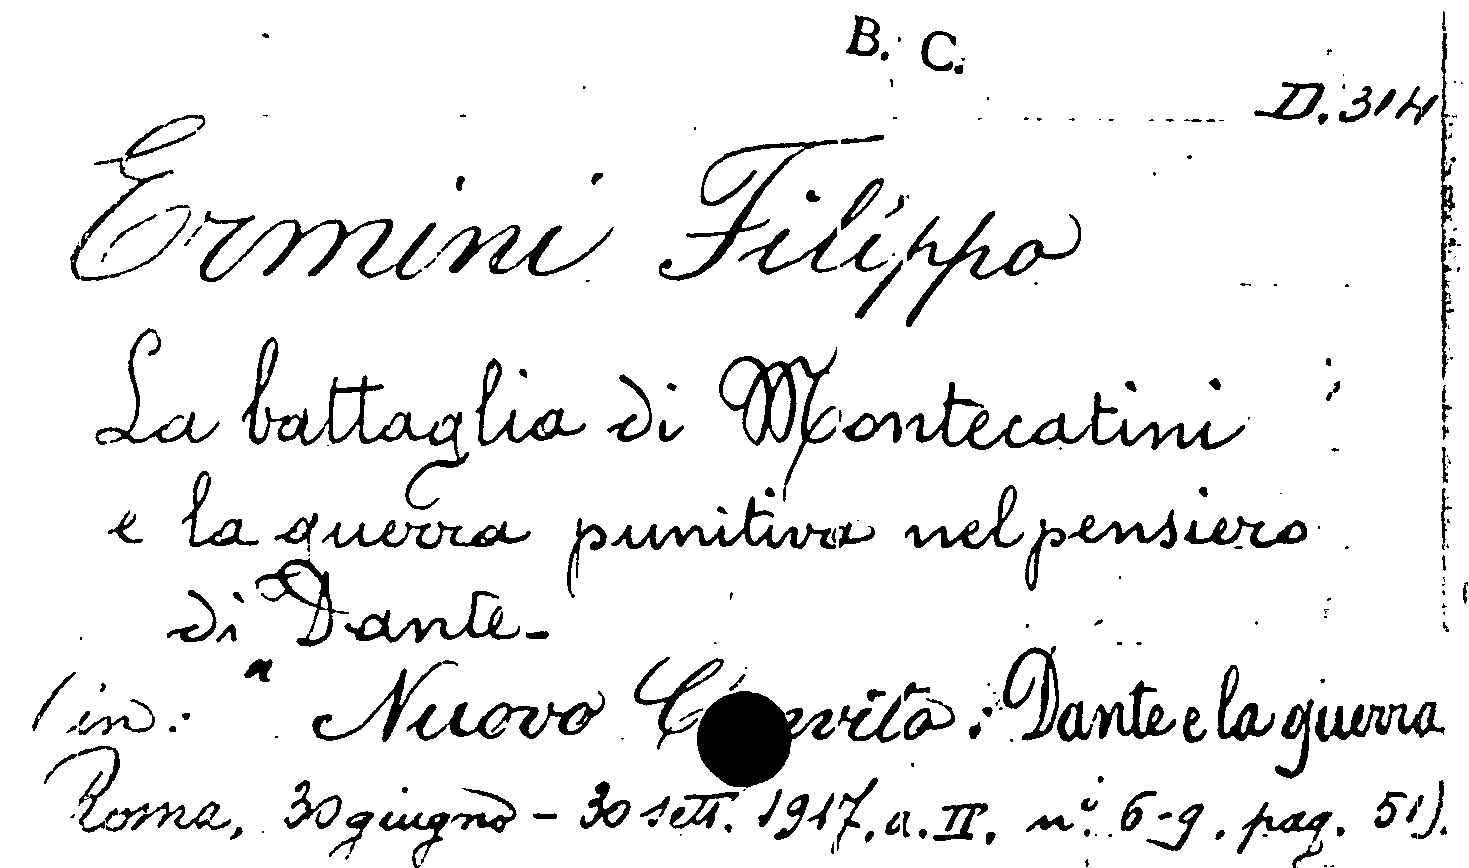 B. C.
D. 314
Ermini Filippo
La battaglia di Montecatini
e la guerra punitiva nel pensiero
di Dante-
(in: " Nuovo Convito: Dante e la guerra
Roma, 30 giugno - 30 sett. 1917. a. II. nⁱ. 6-9. pag. 51).